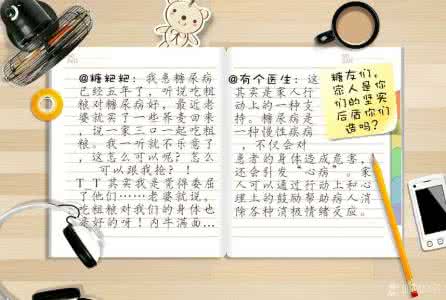 @糖粑粑：我患糖尿病
已经五年了，听说吃粗
粮对糖尿病好，最近老
婆就买了一些荞麦回来，
说一家三口一起吃粗
粮。我一听就不乐意了
，这怎么可以呢？怎么
可以跟我抢？！
T T 其实我是觉得委屈
了他们……老婆就说，
吃粗粮对我们的身体也
蛮好的呀！内牛满面…
@有个医生：这
其实是家人行
动上的一种支
持。糖尿病是
一种慢性疾病
，不仅会对
患者的身体造成危害，
还会引发“心病”。家
人可以通过行动上和心
理上的鼓励帮助病人消
除各种消极情绪反应。
糖友们，
家人是你
们的坚实
后盾你们
造吗？